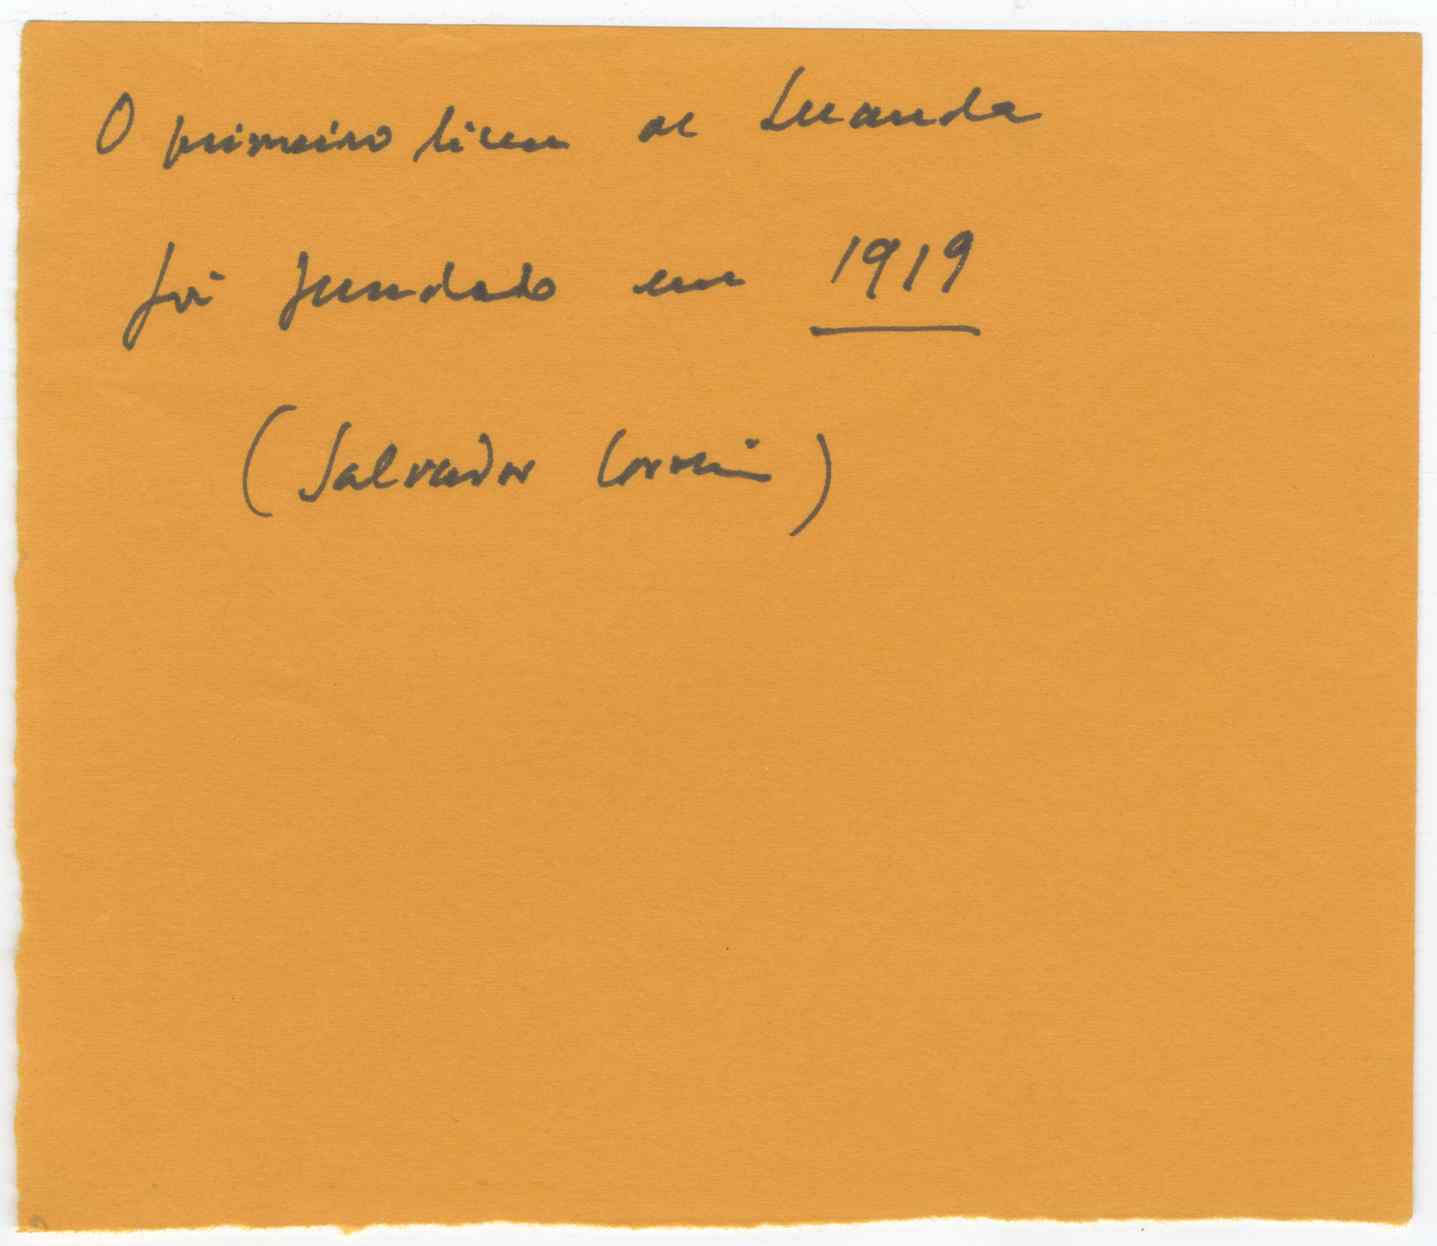 O primeiro liceu de Luanda
foi fundado em 1919
(Salvador Correia)